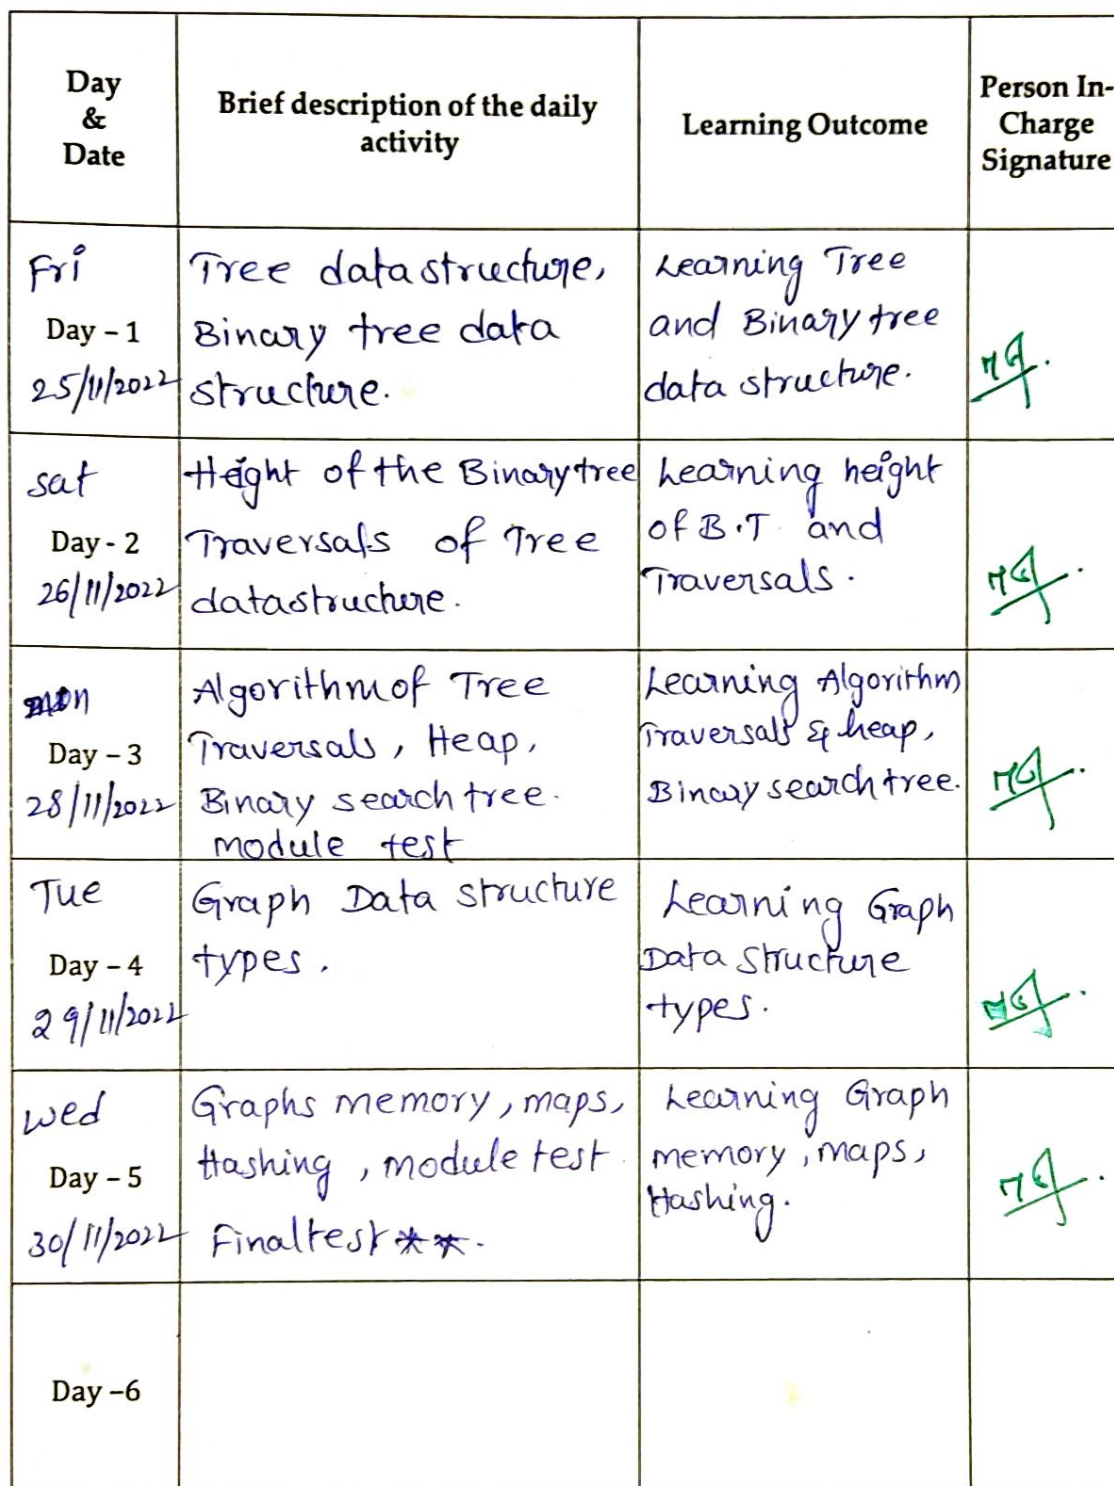 Day
&
Date
Brief description of the daily
activity
Learning Outcome
Person In-
Charge
Signature
Fri
Day – 1
25/11/2022
Tree datastructure,
Binary tree data
structure.
Learning Tree
and Binary tree
data structure.
sat
Day - 2
26/11/2022
Height of the Binary tree
Traversals of Tree
datastructure.
Learning height
of B.T and
Traversals.
mon
Day – 3
28/11/2022
Algorithm of Tree
Traversals, Heap,
Binary search tree.
module test
Learning Algorithm
Traversals & heap,
Binary search tree.
Tue
Day – 4
29/11/2022
Graph Data structure
types.
Learning Graph
Data Structure
types.
wed
Day – 5
30/11/2022
Graphs memory, maps,
Hashing, module test
Final test **.
Learning Graph
memory, maps,
Hashing.
Day –6